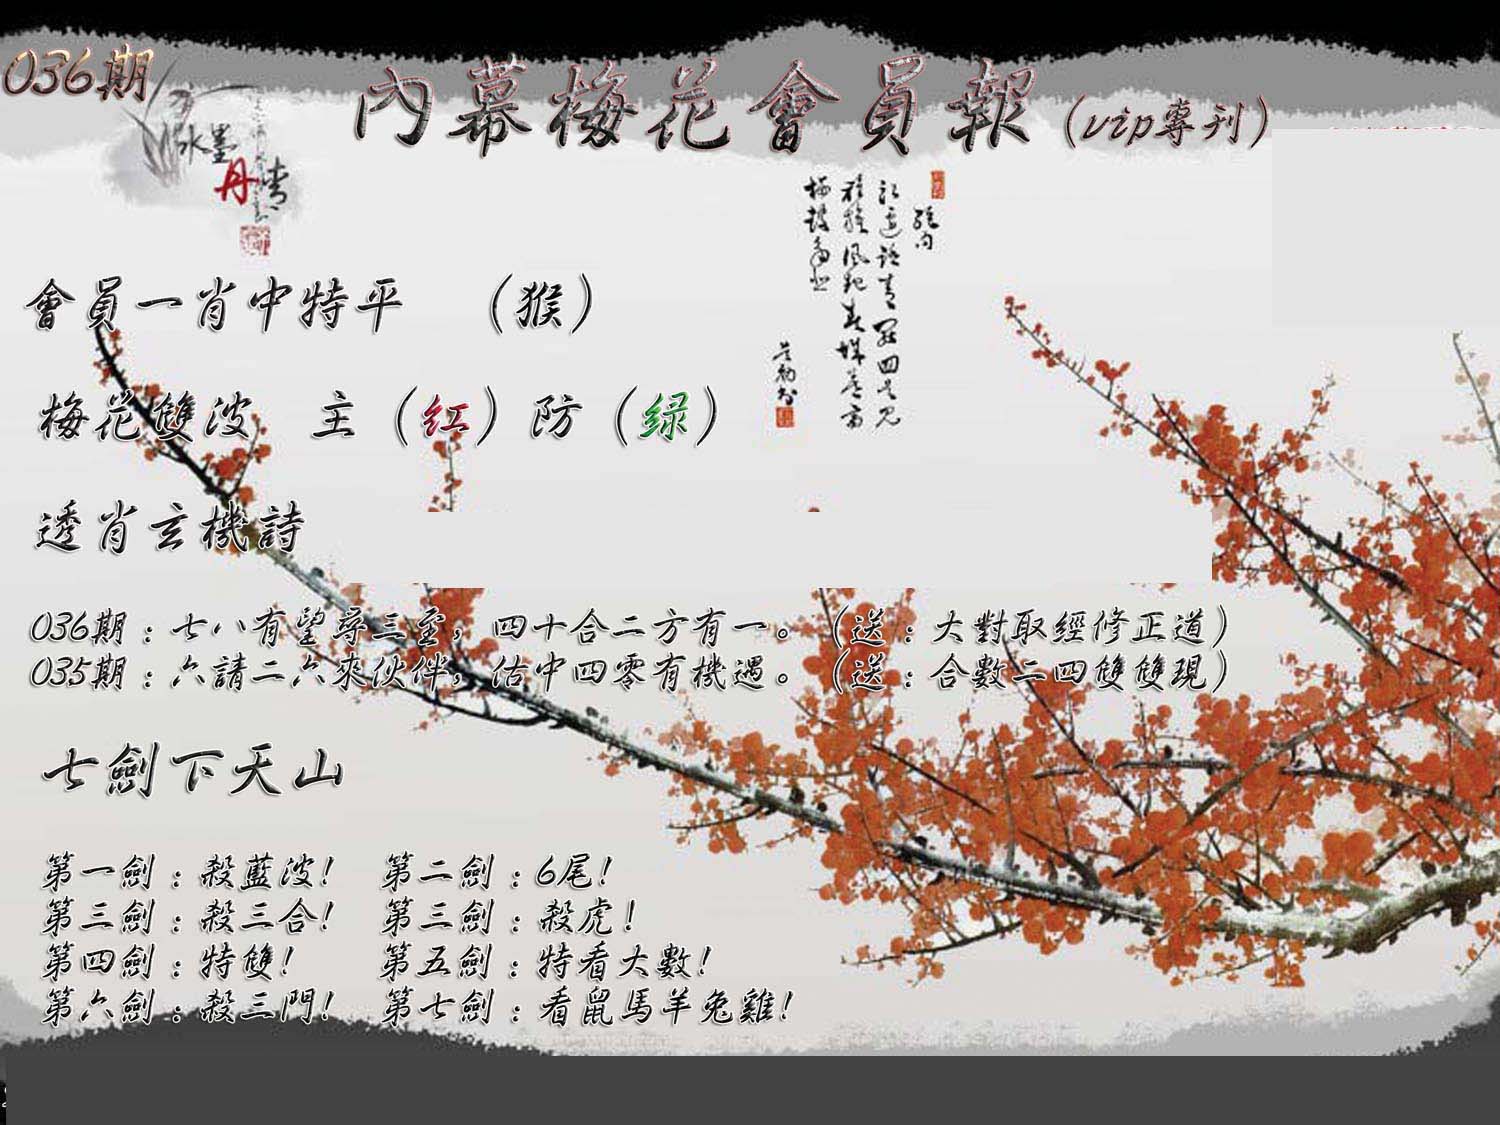 036期
內幕梅花會員報(vip專刊)
水墨
丹青
會員一肖中特平 (猴)
梅花雙波 主(红)防(绿)
透肖玄機詩
036期：七八有望尋三至，四十合二方有一。(送：大對取經修正道)
035期：六請二六來伙伴，估中四零有機遇。(送：合數二四雙雙現)
七劍下天山
第一劍：殺藍波! 第二劍：6尾!
第三劍：殺三合! 第三劍：殺虎!
第四劍：特雙! 第五劍：特看大數!
第六劍：殺三門! 第七劍：看鼠馬羊兔雞!